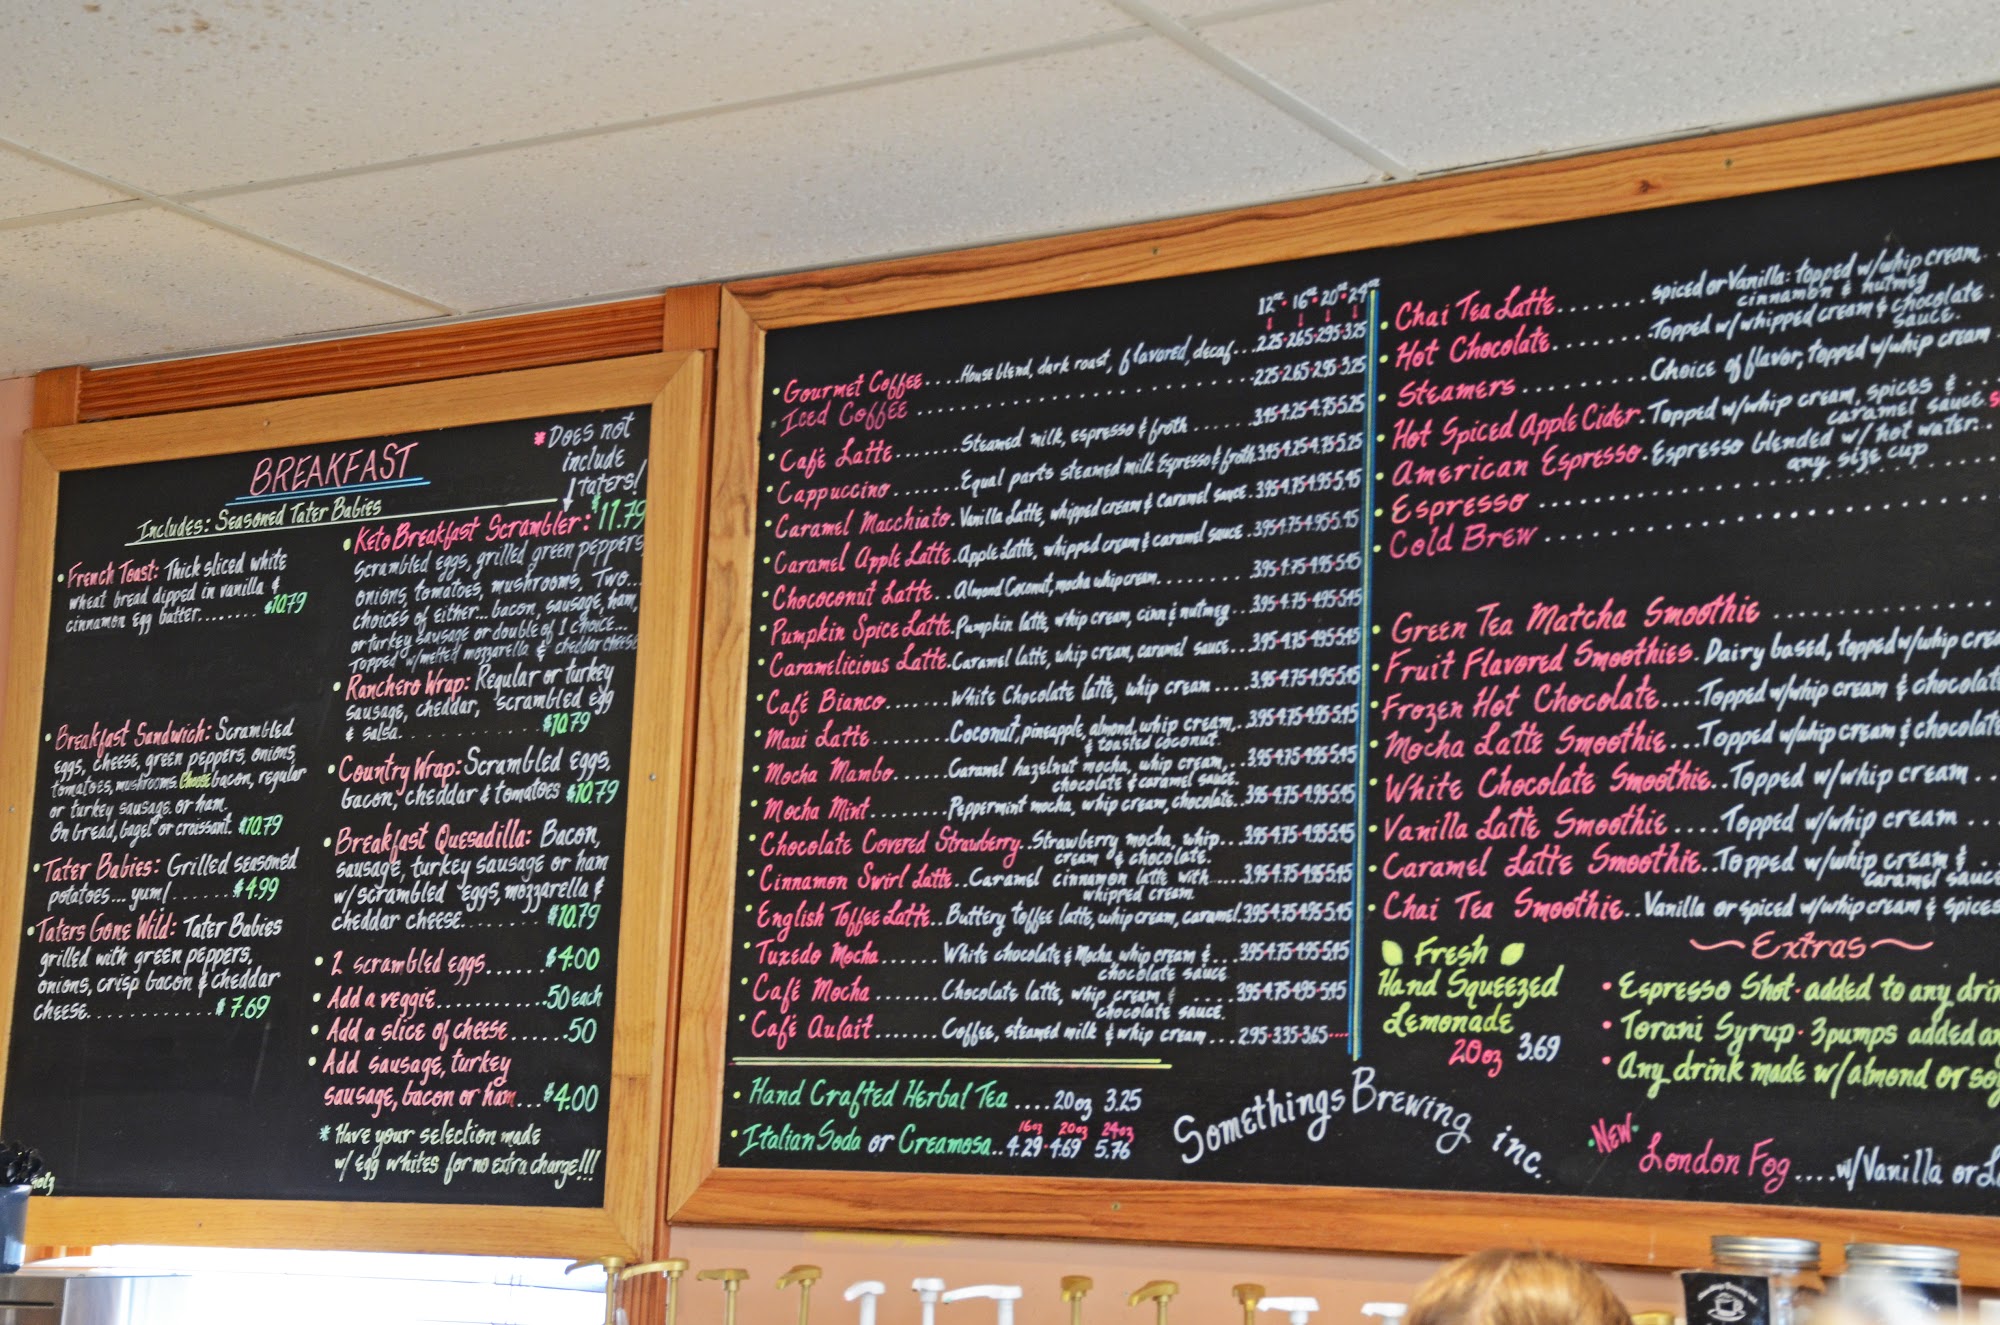 BREAKFAST
Includes: Seasoned Tater Babies
* Does not
include
taters!
• French Toast: Thick sliced white
wheat bread dipped in vanilla &
cinnamon egg batter........ $10.79
• Breakfast Sandwich: Scrambled
eggs, cheese, green peppers, onions,
tomatoes, mushrooms. Choose bacon, regular
or turkey sausage, or ham.
On bread, bagel or croissant. $10.79
• Tater Babies: Grilled seasoned
potatoes... yum! ....... $4.99
• Taters Gone Wild: Tater Babies
grilled with green peppers,
onions, crisp bacon & cheddar
cheese............. $7.69
• Keto Breakfast Scrambler: $11.79
Scrambled eggs, grilled green peppers
onions, tomatoes, mushrooms, Two...
choices of either... bacon, sausage, ham,
or turkey sausage or double of 1 choice...
Topped w/melted mozzarella & cheddar cheese
• Ranchero Wrap: Regular or turkey
sausage, cheddar, scrambled egg
& salsa............. $10.79
• Country Wrap: Scrambled eggs,
bacon, cheddar & tomatoes $10.79
• Breakfast Quesadilla: Bacon,
sausage, turkey sausage or ham
w/scrambled eggs, mozzarella &
cheddar cheese.......... $10.79
• 2 scrambled eggs...... $4.00
• Add a veggie............ .50 each
• Add a slice of cheese...... .50
• Add sausage, turkey
sausage, bacon or ham... $4.00
* Have your selection made
w/ egg whites for no extra charge!!!
12oz • 16oz • 20oz • 24oz
• Gourmet Coffee.... House blend, dark roast, flavored, decaf... 2.25 • 2.65 • 2.95 • 3.25
• Iced Coffee .................... 2.25 • 2.65 • 2.95 • 3.25
• Café Latte....... Steamed milk, espresso & froth ....... 3.95 4.25 4.75 5.25
• Cappuccino ....... Equal parts steamed milk Espresso & froth 3.95 4.25 4.75 5.25
• Caramel Macchiato. Vanilla Latte, whipped cream & Caramel sauce. 3.95 4.75 4.95 5.45
• Caramel Apple Latte. Apple Latte, whipped cream & caramel sauce. 3.95 4.75 4.95 5.45
• Chococonut Latte.. Almond Coconut, mocha whip cream.......... 3.95 4.75 4.95 5.45
• Pumpkin Spice Latte. Pumpkin latte, whip cream, cinn & nutmeg ... 3.95 4.75 4.95 5.45
• Caramelicious Latte. Caramel latte, whip cream, caramel sauce... 3.95 4.75 4.95 5.45
• Café Bianco....... White Chocolate latte, whip cream .... 3.95 4.75 4.95 5.45
• Maui Latte........ Coconut, pineapple, almond, whip cream,.. 3.95 4.75 4.95 5.45
& toasted coconut.
• Mocha Mambo...... Caramel hazelnut mocha, whip cream,.. 3.95 4.75 4.95 5.45
chocolate & caramel sauce.
• Mocha Mint........ Peppermint mocha, whip cream, chocolate.. 3.95 4.75 4.95 5.45
• Chocolate Covered Strawberry.. Strawberry mocha, whip... 3.95 4.75 4.95 5.45
cream & chocolate.
• Cinnamon Swirl Latte.. Caramel cinnamon latte with...... 3.95 4.75 4.95 5.45
whipped cream.
• English Toffee Latte.. Buttery toffee latte, whip cream, caramel. 3.95 4.75 4.95 5.45
• Tuxedo Mocha...... White chocolate & Mocha, whip cream & ... 3.95 4.75 4.95 5.45
chocolate sauce
• Café Mocha ....... Chocolate latte, whip cream & .... 3.95 4.75 4.95 5.45
chocolate sauce.
• Café Aulait ....... Coffee, steamed milk & whip cream ... 2.95 • 3.35 3.65 ....
• Hand Crafted Herbal Tea .... 20oz 3.25
16oz 20oz 24oz
• Italian Soda or Creamosa.. 4.29 • 4.69 5.76
Somethings Brewing inc.
• Chai Tea Latte....... spiced or Vanilla: topped w/whip cream,
cinnamon & nutmeg
• Hot Chocolate....... Topped w/whipped cream & chocolate
sauce.
• Steamers .......... Choice of flavor, topped w/whip cream
• Hot Spiced Apple Cider. Topped w/whip cream, spices & ..
caramel sauce.
• American Espresso. Espresso blended w/ hot water..
any size cup
• Espresso ....................
• Cold Brew ....................
• Green Tea Matcha Smoothie .............
• Fruit Flavored Smoothies. Dairy based, topped w/whip
• Frozen Hot Chocolate.... Topped w/whip cream &
• Mocha Latte Smoothie... Topped w/whip cream &
• White Chocolate Smoothie.. Topped w/whip cream ...
• Vanilla Latte Smoothie .... Topped w/whip cream ...
• Caramel Latte Smoothie.. Topped w/whip cream & ..
caramel
• Chai Tea Smoothie.. Vanilla or spiced w/whip cream & spices
Fresh
Hand Squeezed
Lemonade
20oz 3.69
Extras
• Espresso Shot • added to any
• Torani Syrup • 3 pumps added
• Any drink made w/almond or
• NEW •
London Fog .... w/Vanilla or